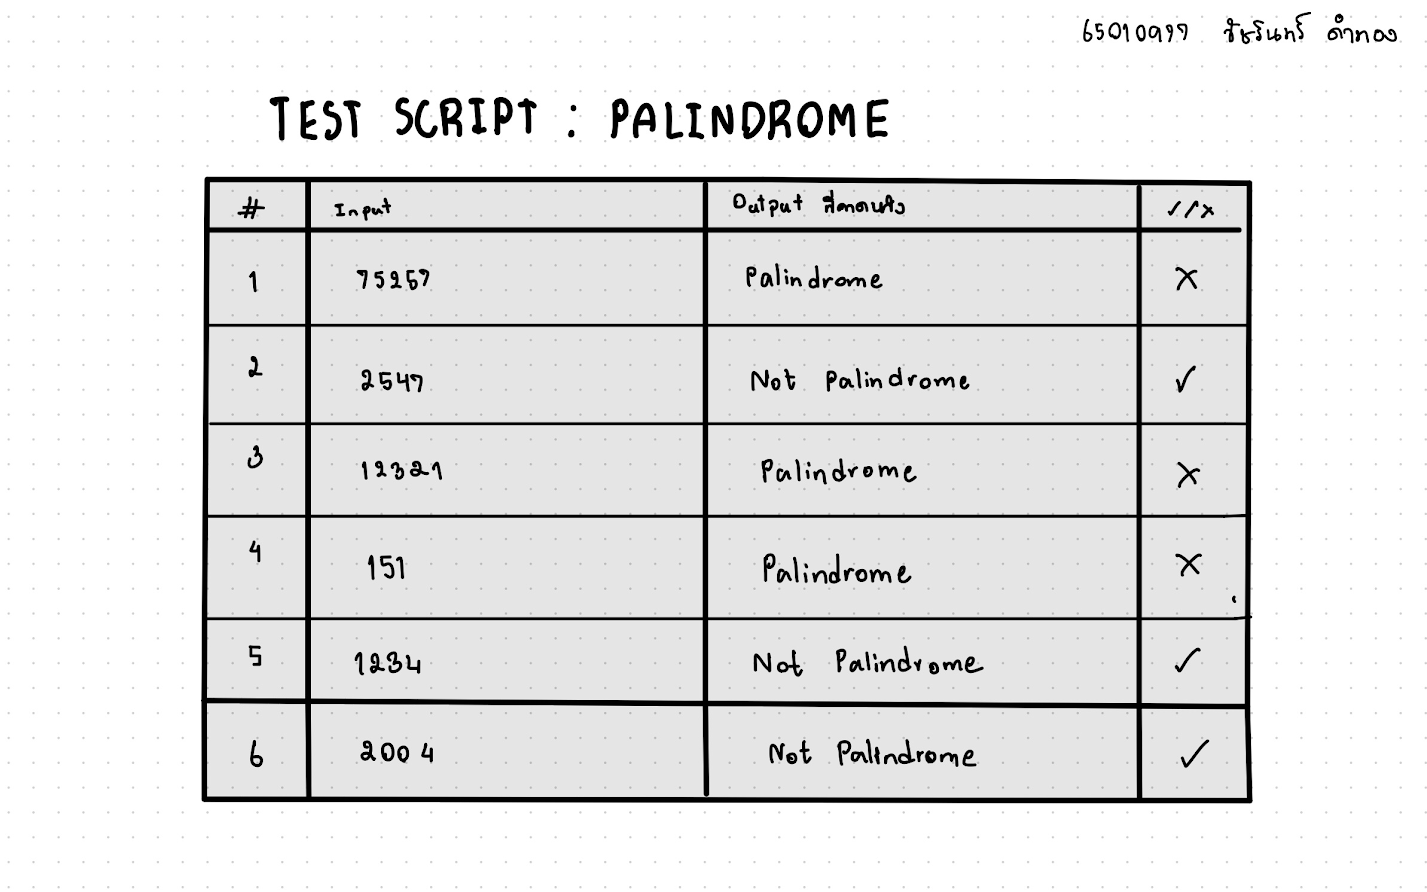 65010977 ชัชรินทร์ ดำทอง
TEST SCRIPT : PALINDROME
# Input Output ที่คาดหวัง ✓/x
1 75257 Palindrome x
2 2547 Not Palindrome ✓
3 12321 Palindrome x
4 151 Palindrome x
5 1234 Not Palindrome ✓
6 2004 Not Palindrome ✓